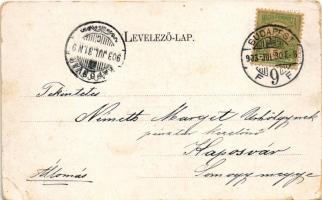 LEVELEZŐ-LAP.
BUDAPEST
903 JUL. 31. N 9
903 JUL 30
9
Tekintetes
Németh Margit Urhölgynek
Kaposvár
Állomás
Somogy megye